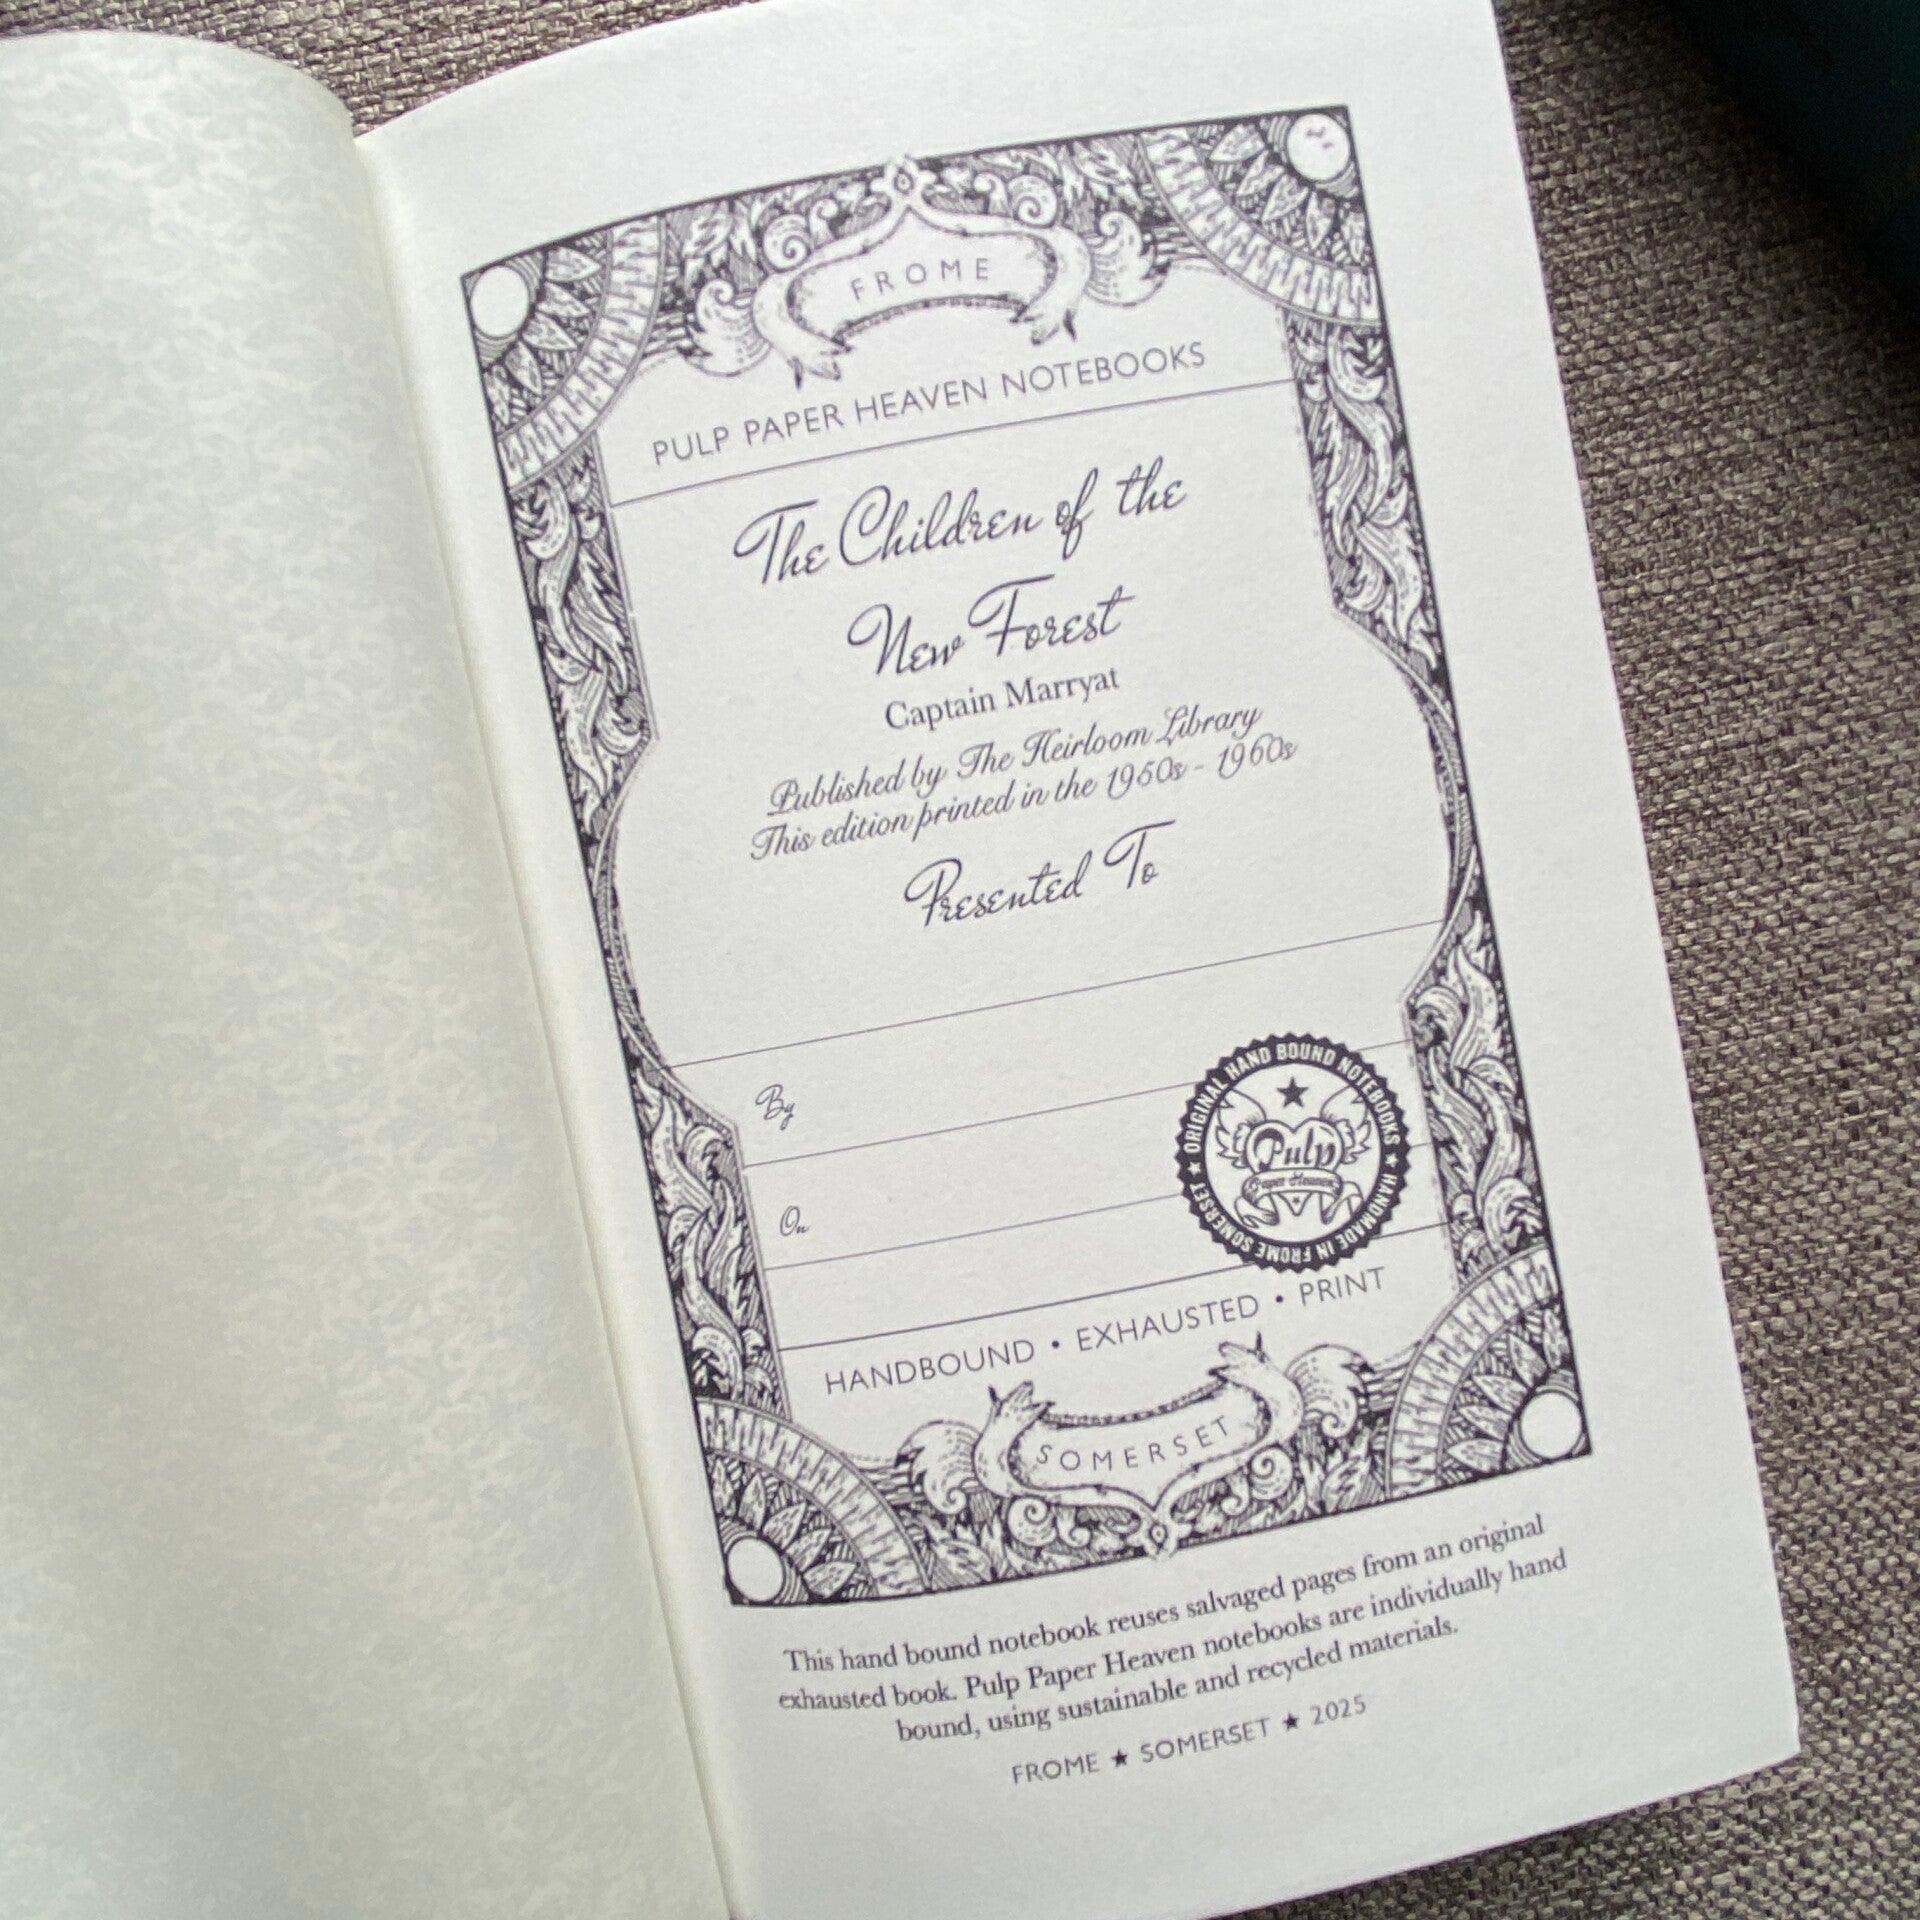 FROME
PULP PAPER HEAVEN NOTEBOOKS
The Children of the
New Forest
Captain Marryat
Published by The Heirloom Library
This edition printed in the 1950s - 1960s
Presented To
By
On
★ ORIGINAL HAND BOUND NOTEBOOKS ★ HANDMADE IN FROME SOMERSET
Pulp
Paper Heaven
HANDBOUND • EXHAUSTED • PRINT
SOMERSET
This hand bound notebook reuses salvaged pages from an original
exhausted book. Pulp Paper Heaven notebooks are individually hand
bound, using sustainable and recycled materials.
FROME ★ SOMERSET ★ 2025